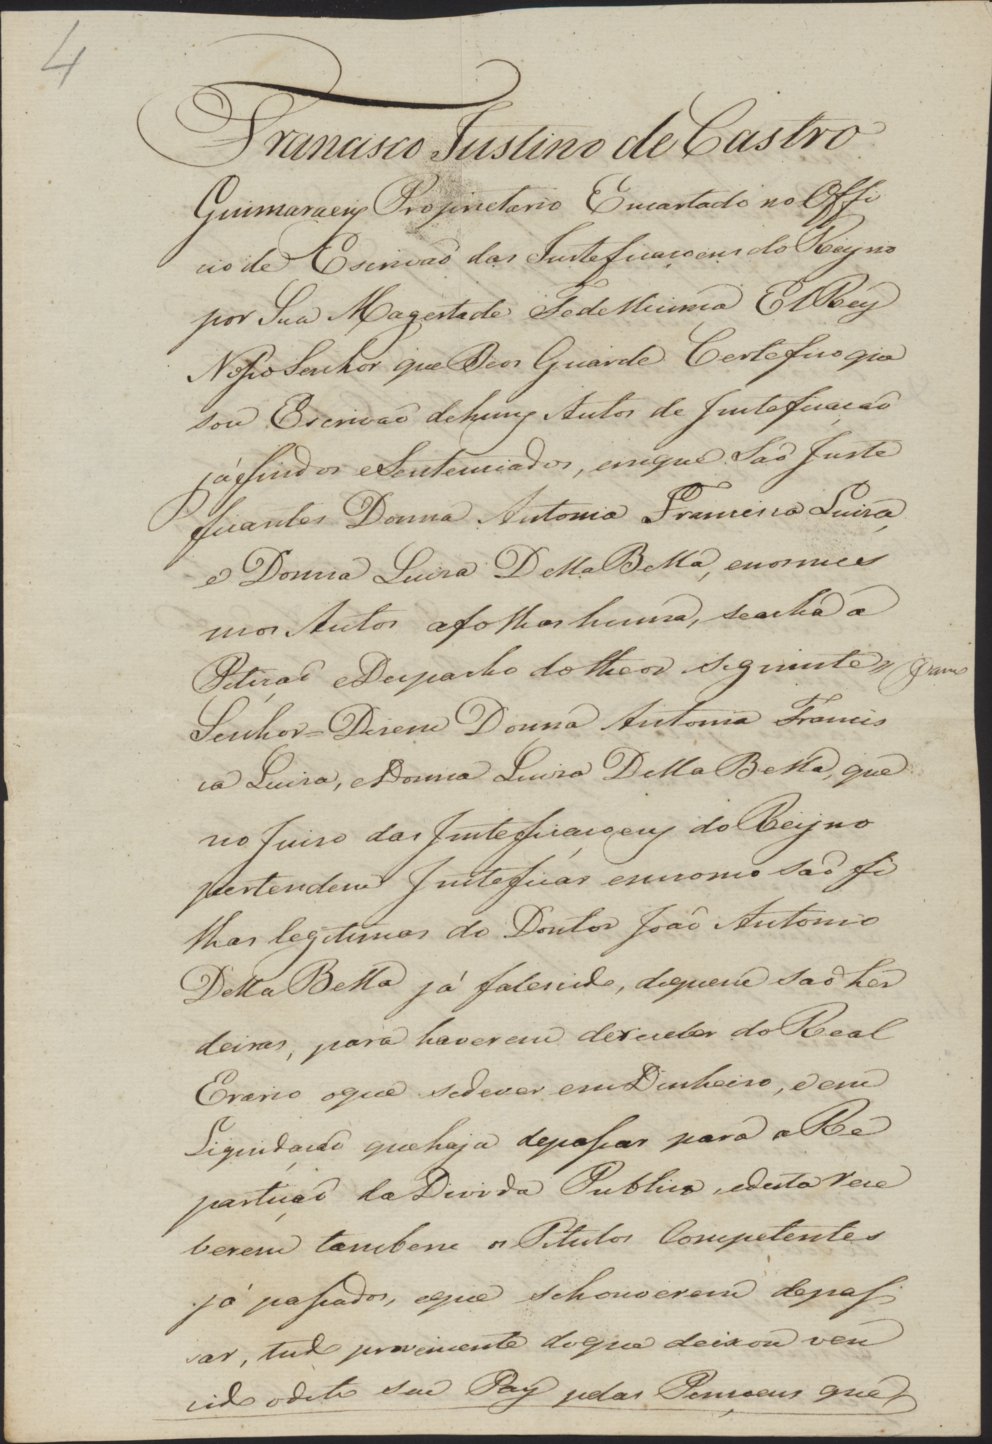 4
Francisco Justino de Castro
Guimaraens Proprietario Encartado no Offi
cio de Escrivaõ das Justeficaçoens do Reyno
por Sua Magestade Fedellicima El Rey
Nosso Senhor que Deos Guarde Certefico que
sou Escrivaõ dehuns Autos de Justeficaçaõ
já findos eSentenciados, emque Saõ Juste
ficantes Donna Antonia Francisca Luiza,
e Donna Luiza Della Bella, enosmes
mos Autos afolhas huma, seacha a
Petiçaõ eDespacho dotheor seguinte
Senhor = Dizem Donna Antonia Francis
ca Luiza, eDonna Luiza Della Bella, que
no Juizo das Justeficaçoens do Reijno
pertendem Justeficar emcomo saõ fi
lhas legitimas do Doutor Joaõ Antonio
Della Bella já falecido, dequem saõ her
deiras, para haverem dereceber do Real
Erario oque sedever em Dinheiro, e em
Liquidaçaõ quehaja depassar para a Re
partiçaõ da Divida Publica, edesta rece
berem tambem os Titulos Competentes
já passados, eque sehouverem depas
sar, tudo proveniente doque deixou ven
cido odito seu Pay pelas Pençoens que